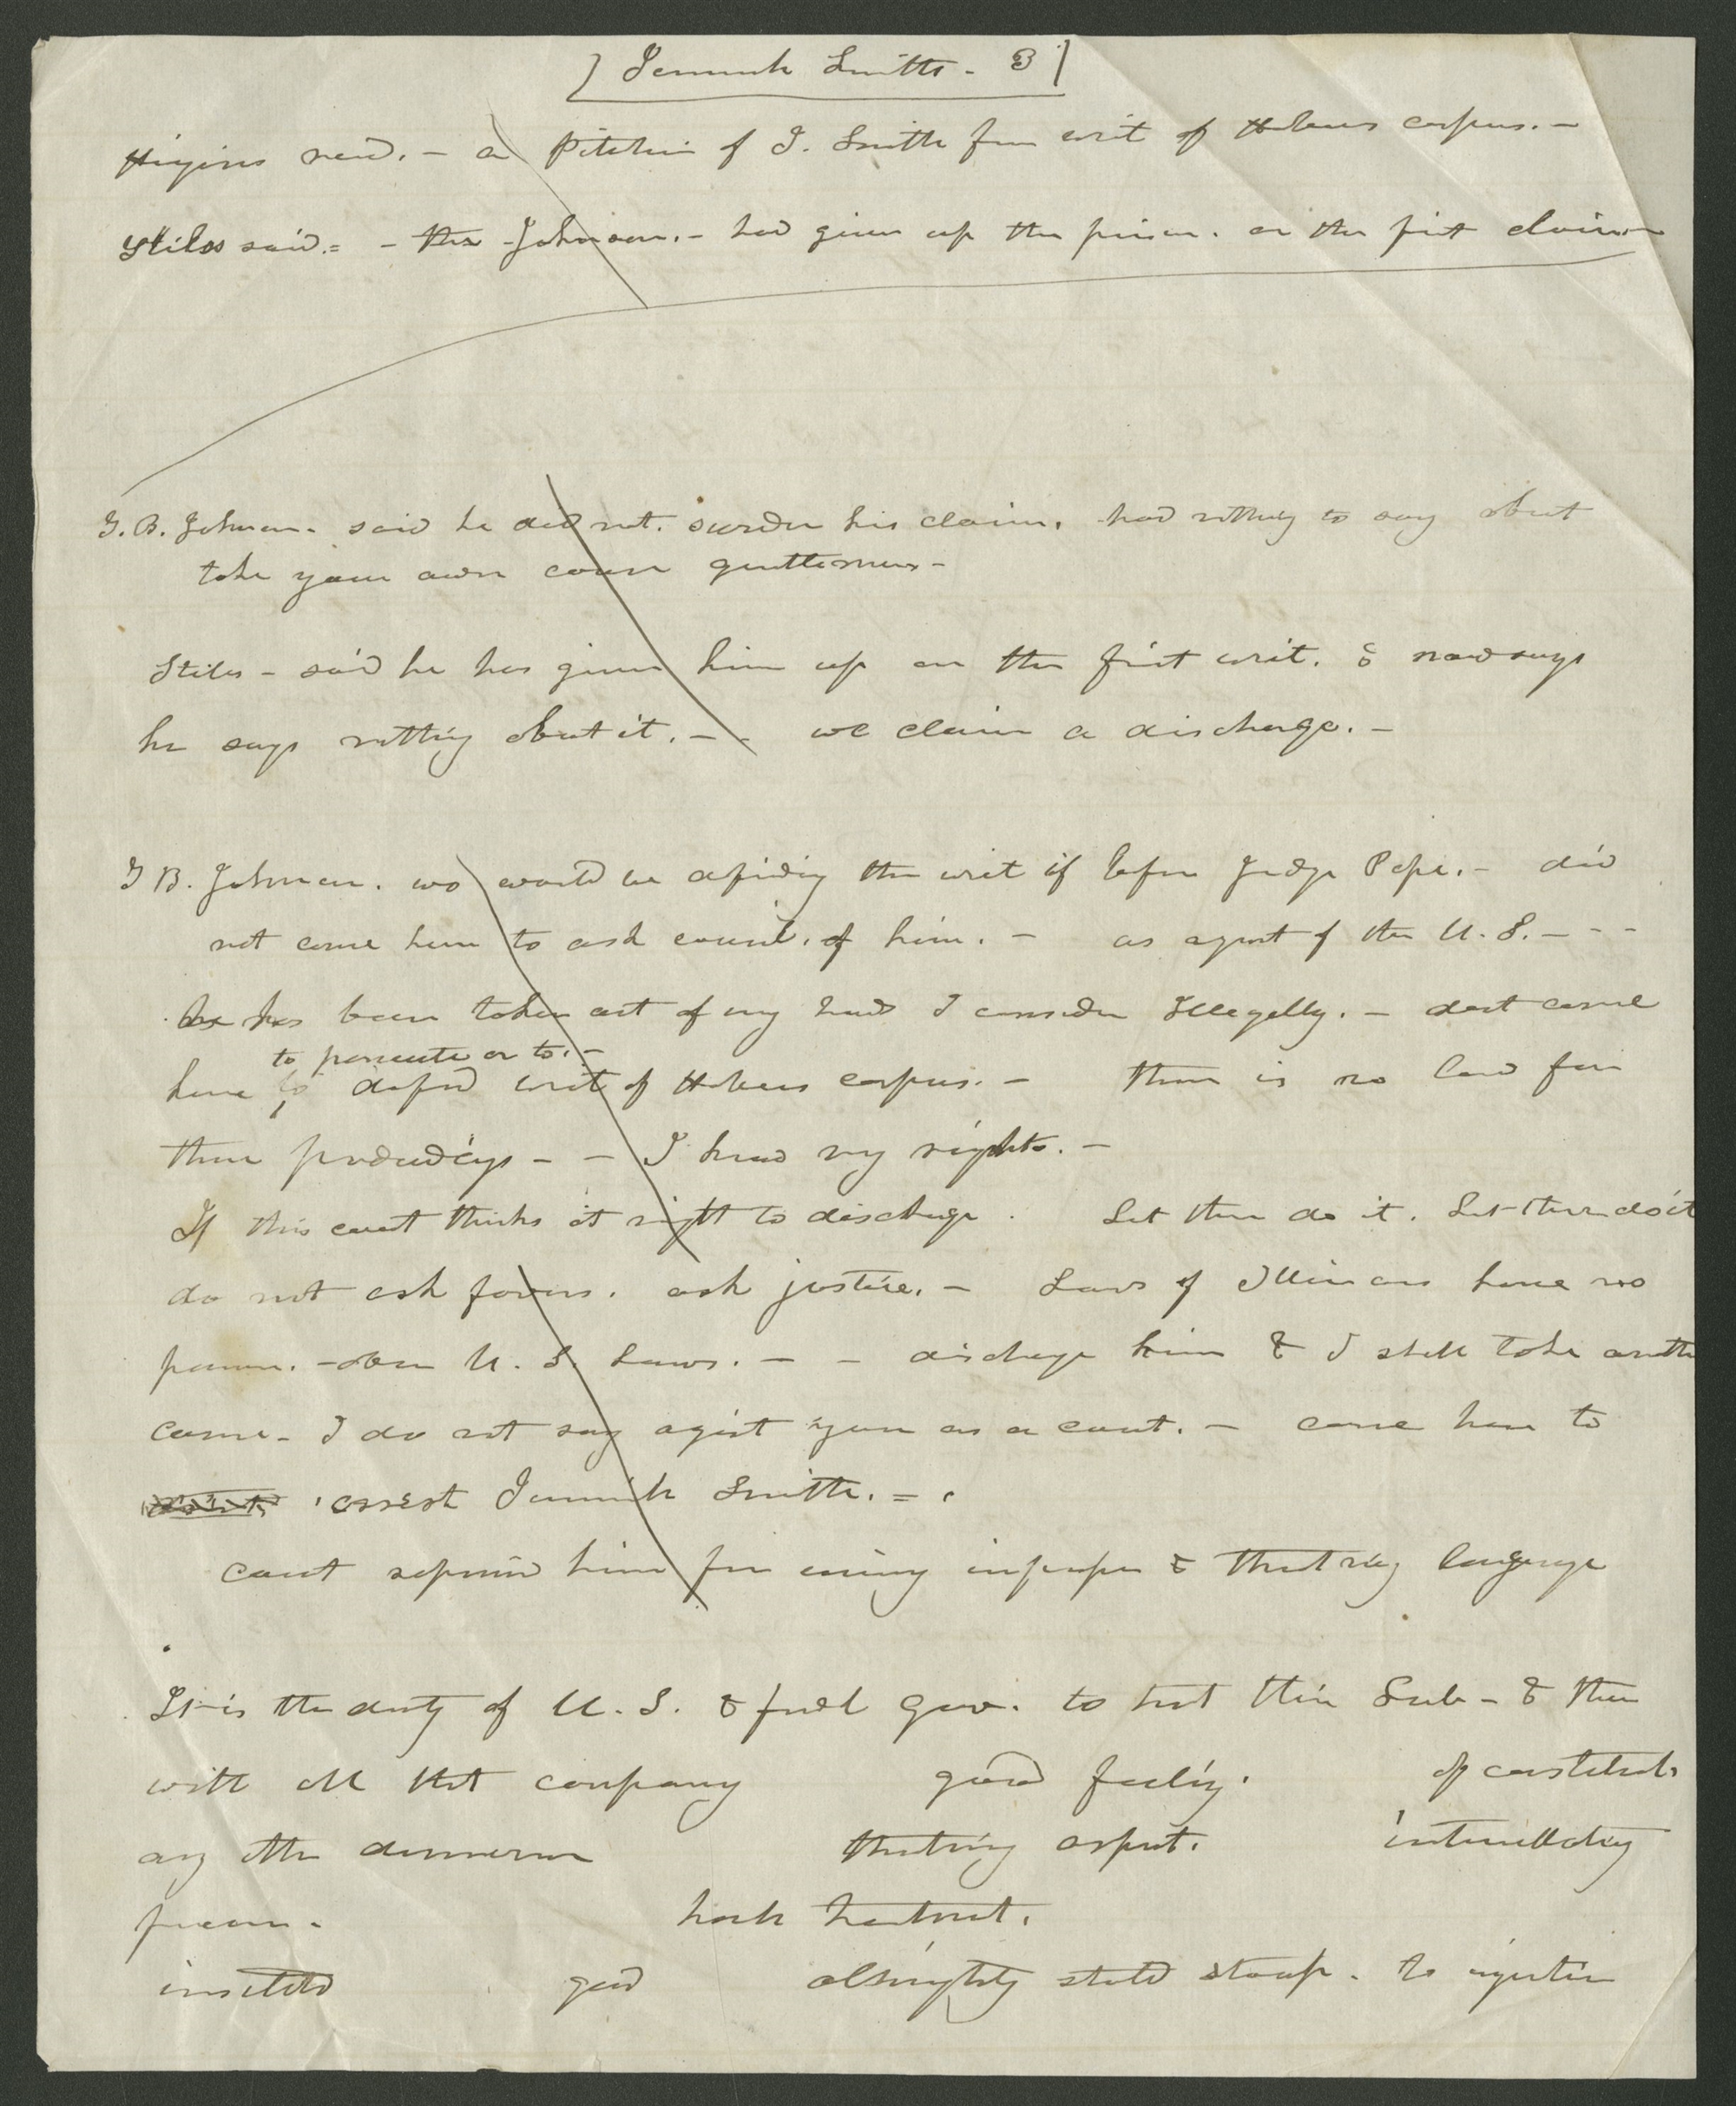 [Jeremiah Smith. 3]
Higins read. — a Pitition of J. Smith for writ of Habeus corpus. —
Stiles said. = — Johnson. — had given up the prisoner. on the first claim
T. B. Johnson. said he did not. surrder his claim. had nothing to say about
take your own course gentlemen —
Stiles — said he has given him up on the first writ. & now says
he says nothing about it. — - we claim a discharge. —
T B. Johnson. wo would be abiding the writ if before Judge Pope. — did
not come here to ask council. of him. — as agent of the U. S. — - -
he has been taken out of my hands I consider Illegally. — dont come
to persecute or to. —
here to defend writ of Habeus corpus. — there is no law for
these procedings — — I know my rights. —
If this court thinks it right to discharge. Let them do it. Let them do it
do not ask favors. ask justice. — Laws of Illinois have no
power. — over U. S. Laws. — — discharge him & I shall take another
course — I do not say against your as a court. — come here to
arrest Jeremiah Smith. =
court reprimd him for using improper & threatning language
It is the duty of U. S. & fedl Gov. to treat their Sub — & then
with all that company good feeling. of constitut.
any other demeanor threatning aspect. intimidating
freemen. harsh treatment.
insulted god almighty stoop. to injustice